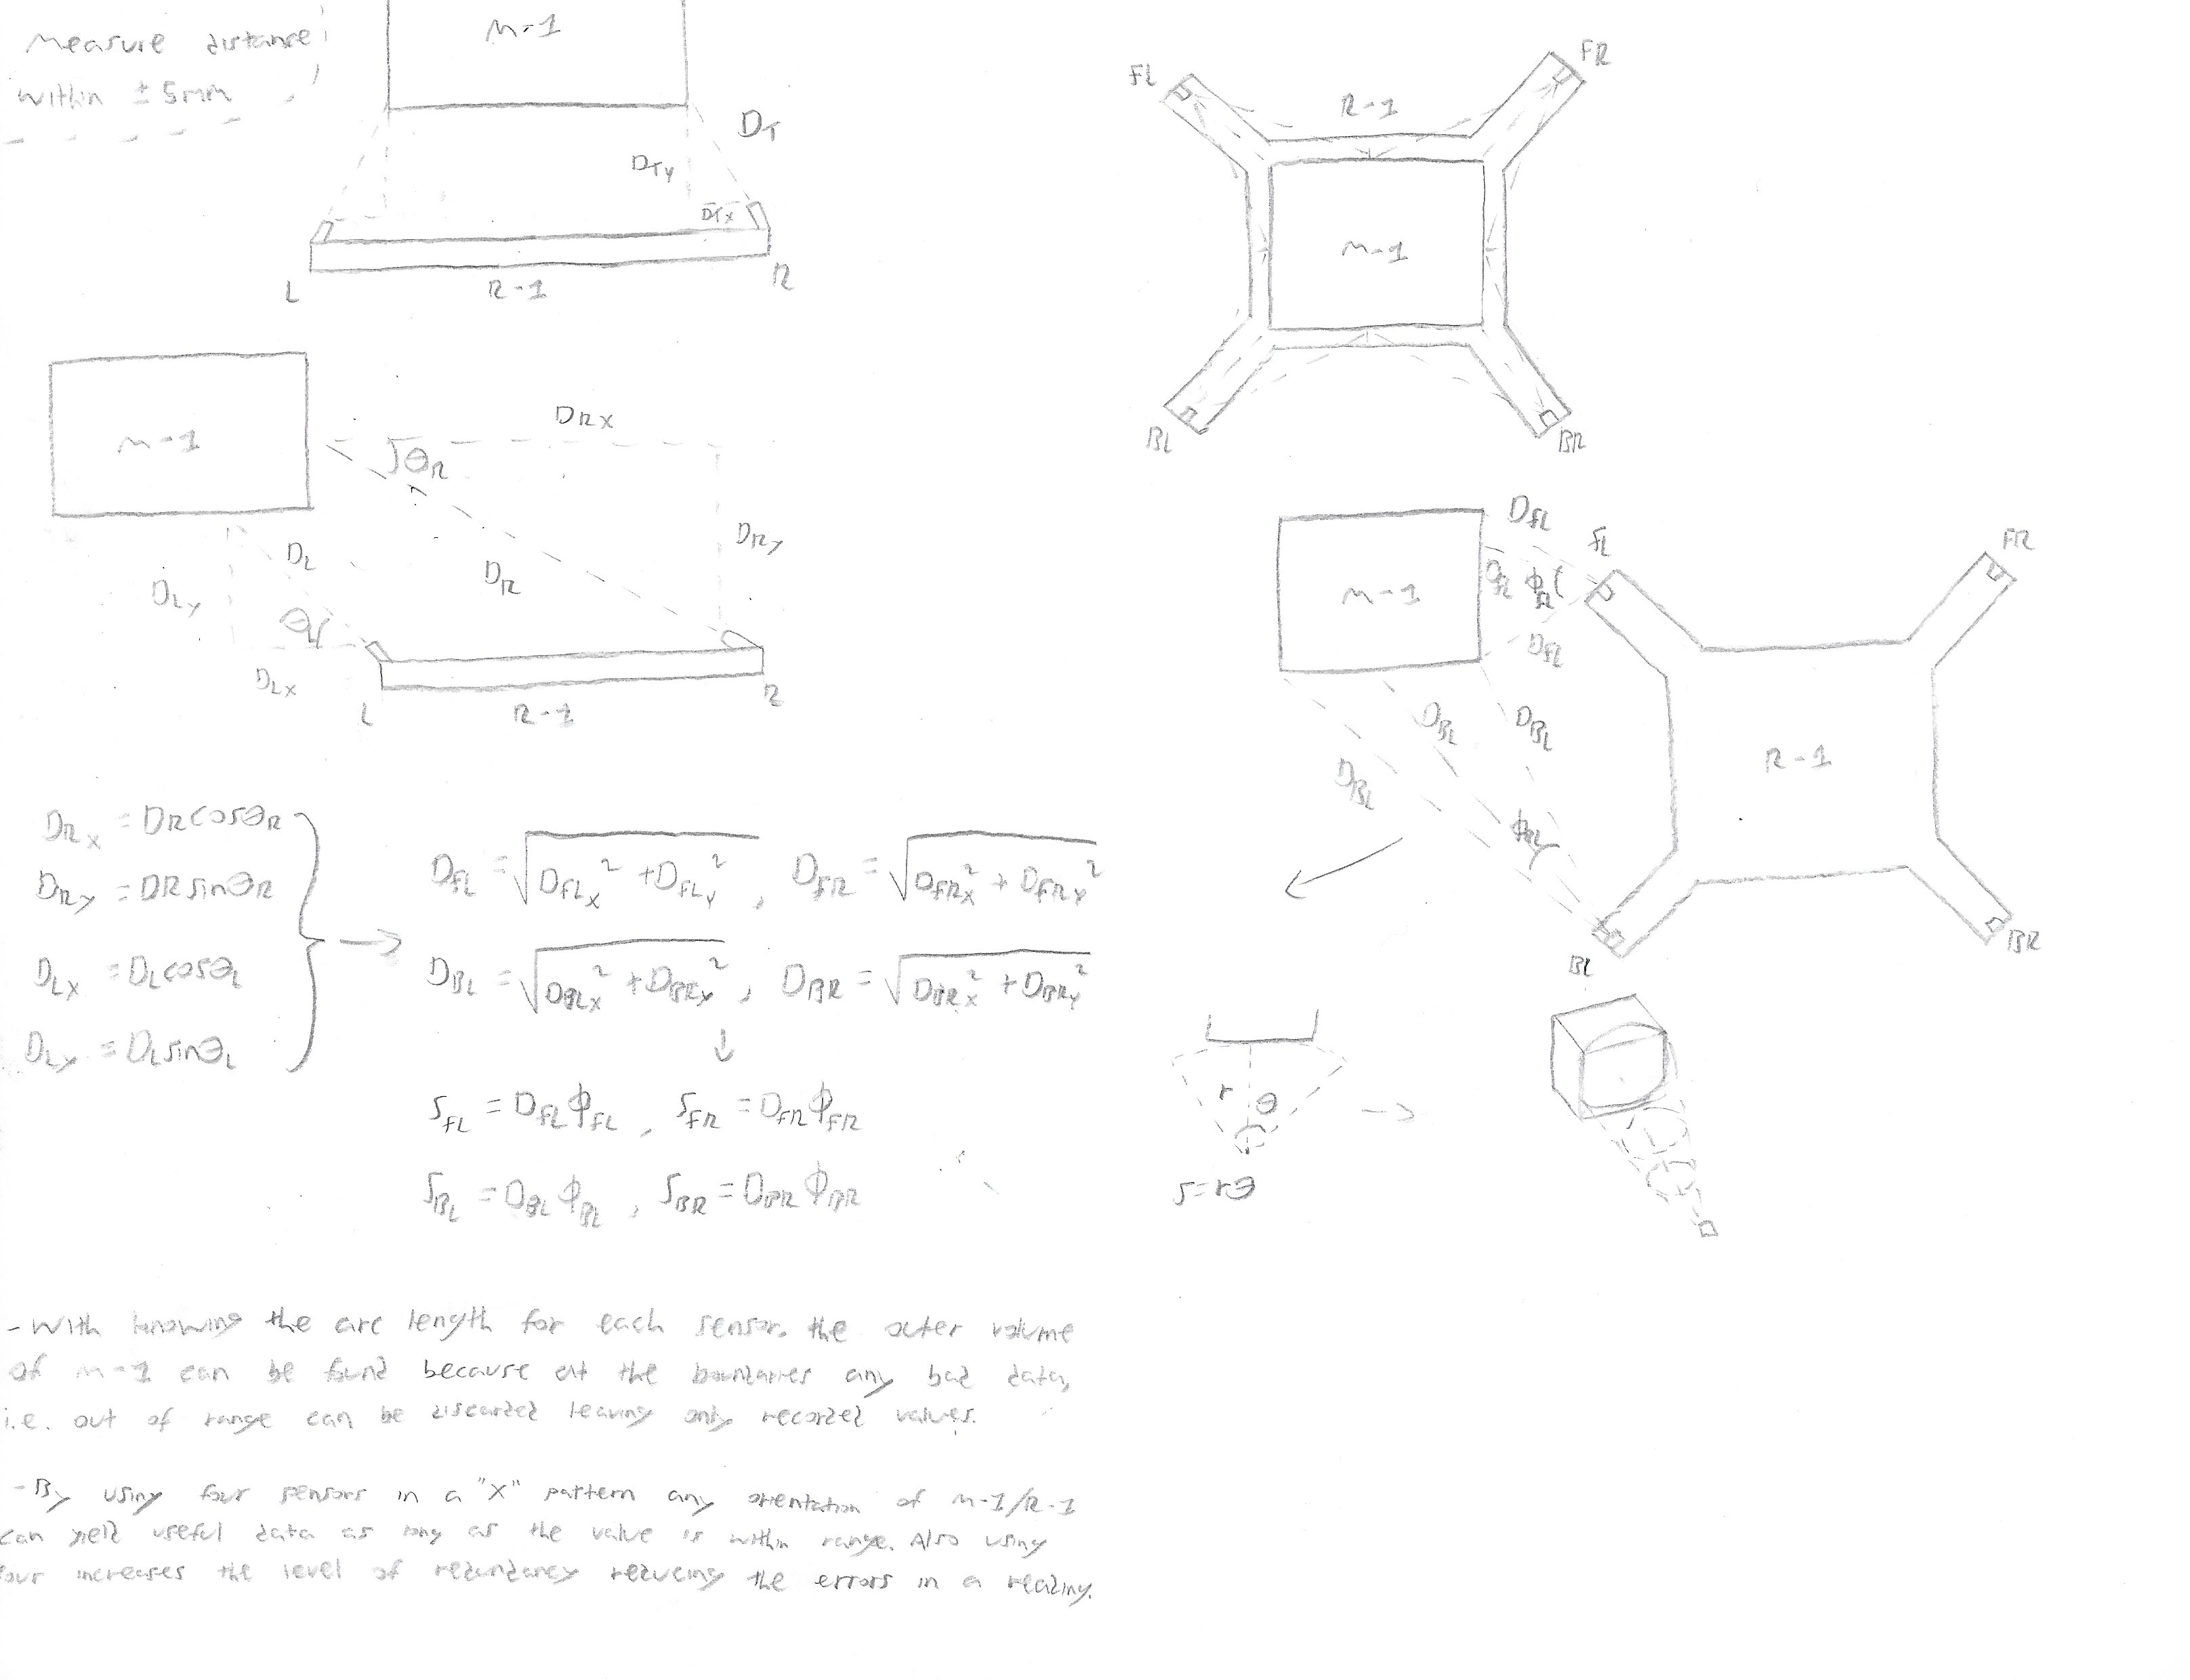 Measure distance
within ± 5mm
M-1
D_T
D_Ty
D_Tx
L
R-1
R
M-1
D_Rx
θ_R
D_Ry
D_L
D_R
D_Ly
θ_L
D_Lx
L
R-1
R
FL
FR
R-1
M-1
BL
BR
D_fL
fL
FR
M-1
D_fL
ϕ_fL
D_fL
D_BL
D_BL
D_BL
ϕ_BL
R-1
BL
BR
D_Rx = DRcosθ_R
D_Ry = DRsinθ_R
D_Lx = D_Lcosθ_L
D_Ly = D_Lsinθ_L
D_fL = √(D_fLx² + D_fLy²), D_fR = √(D_fRx² + D_fRy²)
D_BL = √(D_BLx² + D_BRy²), D_BR = √(D_BRx² + D_BRy²)
S_fL = D_fL ϕ_fL, S_fR = D_fR ϕ_fR
S_BL = D_BL ϕ_BL, S_BR = D_BR ϕ_BR
r
θ
s=rθ
- With knowing the arc length for each sensor. the outer volume
of M-1 can be found because at the boundaries any bad data,
i.e. out of range can be discarded leaving only recorded values.
- By using four sensors in a "X" pattern any orientation of M-1/R-1
can yield useful data as long as the value is within range. Also using
four increases the level of redundancy reducing the errors in a reading.